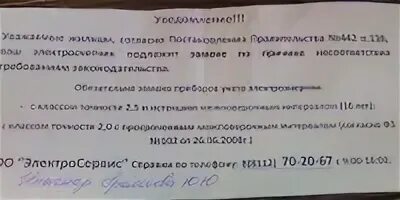 Уведомление!!!
Уважаемые жильцы, согласно Постановления Правительства №442 п.138,
ваш электросчетчик подлежит замене по причине несоответствия
требованиям законодательства.
Обязательна замена приборов учета электроэнергии
- с классом точности 2,5 и истекшим межповерочным интервалом (16 лет);
с классом точности 2,0 с просроченным межповерочным интервалом (согласно ФЗ
№102 от 26.06.2008г.)
ОО "ЭлектроСервис" Справки по телефону 70-20-67 с
Инженер Ю.Ю